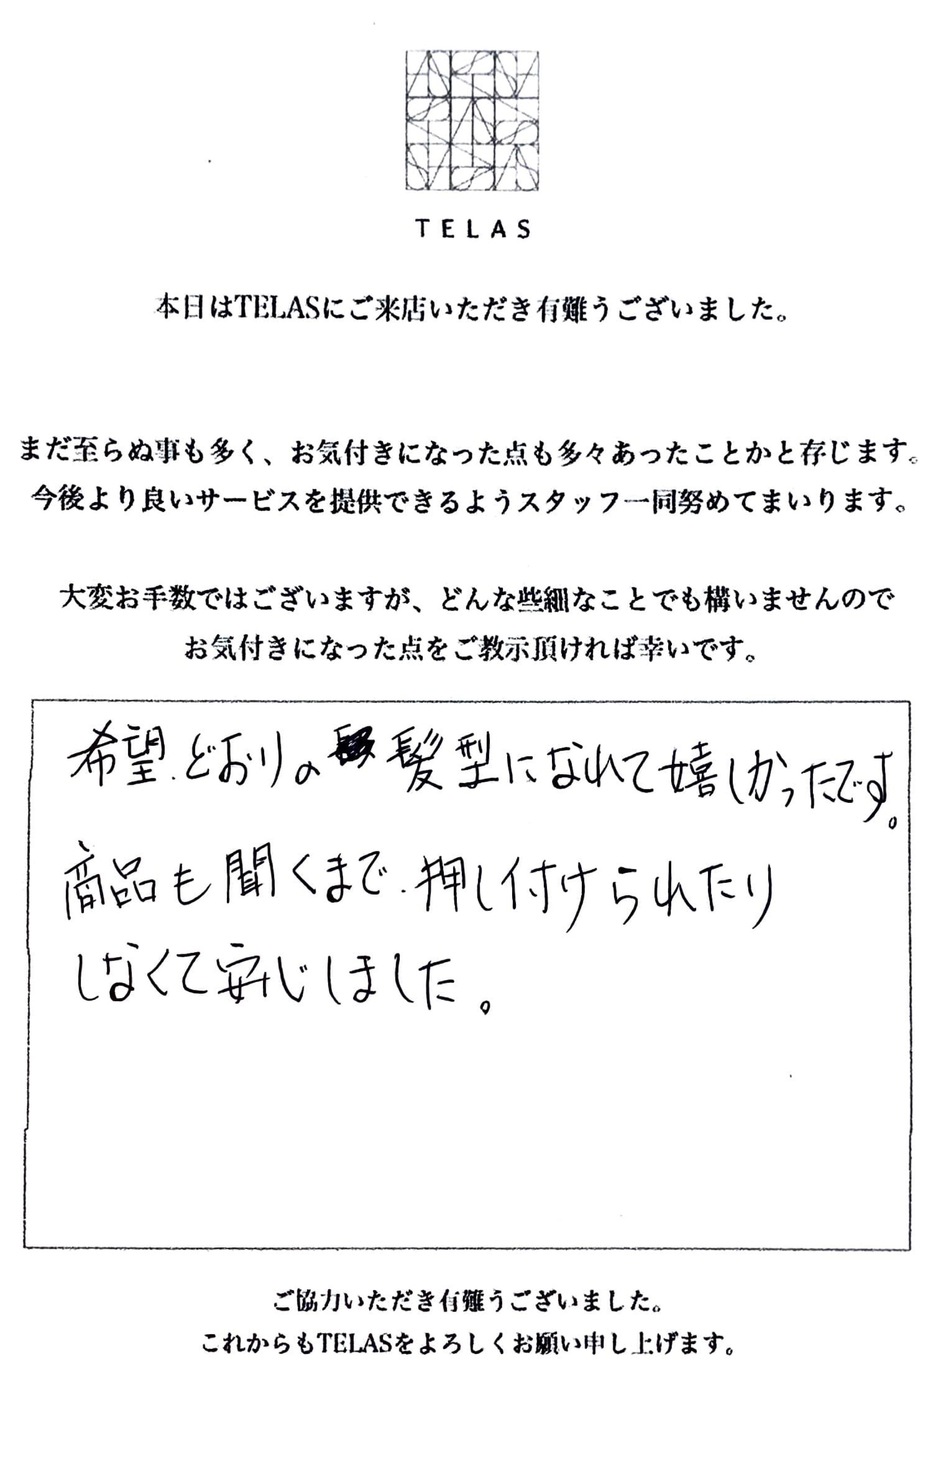 TELAS
本日はTELASにご来店いただき有難うございました。
まだ至らぬ事も多く、お気付きになった点も多々あったことかと存じます。
今後より良いサービスを提供できるようスタッフ一同努めてまいります。
大変お手数ではございますが、どんな些細なことでも構いませんので
お気付きになった点をご教示頂ければ幸いです。
希望どおりの髪型になれて嬉しかったです。
商品も聞くまで押し付けられたり
しなくて安じしました。
ご協力いただき有難うございました。
これからもTELASをよろしくお願い申し上げます。